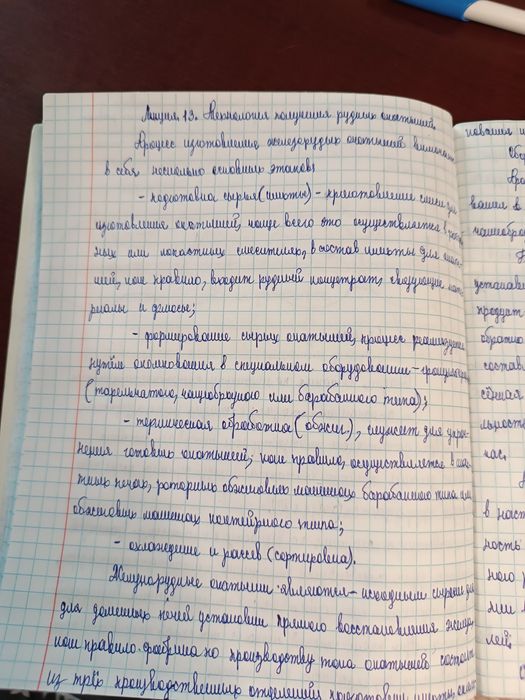 Лекция 13. Технология получения рудных окатышей.
Процесс изготовления железорудных окатышей включает
в себя несколько основных этапов:
- подготовка сырья (шихты) - приготовление смеси для
изготовления окатышей, чаще всего это осуществляется в
ных или лопастных смесителях, в состав шихты для окаты-
шей, как правило, входит рудный концентрат, связующие мате-
риалы и флюсы;
- формирование сырых окатышей, процесс реализуется
путём окомкования в специальном оборудовании - грануляторах
(тарельчатого, чашеобразного или барабанного типа);
- термическая обработка (обжиг), служит для упроч-
нения готовых окатышей; как правило, осуществляется в шах-
тных печах, роторных обжиговых машинах барабанного типа или
обжиговых машинах конвейерного типа;
- охлаждение и рассев (сортировка).
Железорудные окатыши являются - исходным сырьём для
для доменных печей установки прямого восстановления железа,
как правило фабрика по производству типа окатышей состоит
из трёх производственных отделений
невания и
сбр
вания в
чашеобраз
установ
продукт
обратно
состав
сённая
льность
час.
в наст
ность
ного
ми
лей